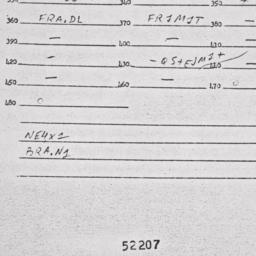 340 350
360 FRA.DL 370 FRIMIT 380 —
390 — 400 — 410 —
420 - 430 440 -
450 — 460 — 470 0
480 0
NE4X1
BRA.N1
52207